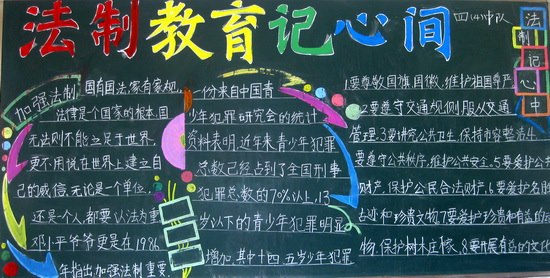 法制教育记心间
四(4)中队
法制记心中
加强法制
国有国法,家有家规,
法律是个国家的根本,国
无法则不能立足于世界,
更不用说在世界上建立自
己的威信,无论是一个单位,
还是个人,都要认法为重
邓小平爷爷更是在1986
年指出加强法制重要,
一份来自中国青
少年犯罪研究会的统计
资料表明,近年来青少年犯罪
总数已经占到了全国刑事
犯罪总数的70%以上,13
岁以下的青少年犯罪明显
增加,其中十四、五岁少年犯罪
1要尊敬国旗、国徽,维护祖国尊严
2要遵守交通规则服从交通
管理,3要讲究公共卫,保持市容整洁,4
要遵守公共秩序,维护公共安全,5要爱护公
财产,保护公民合法财产,6要爱护名胜
古迹和珍贵文物,7要爱护珍贵和有益的动
物,保护树木庄稼,8要开展有益的文化